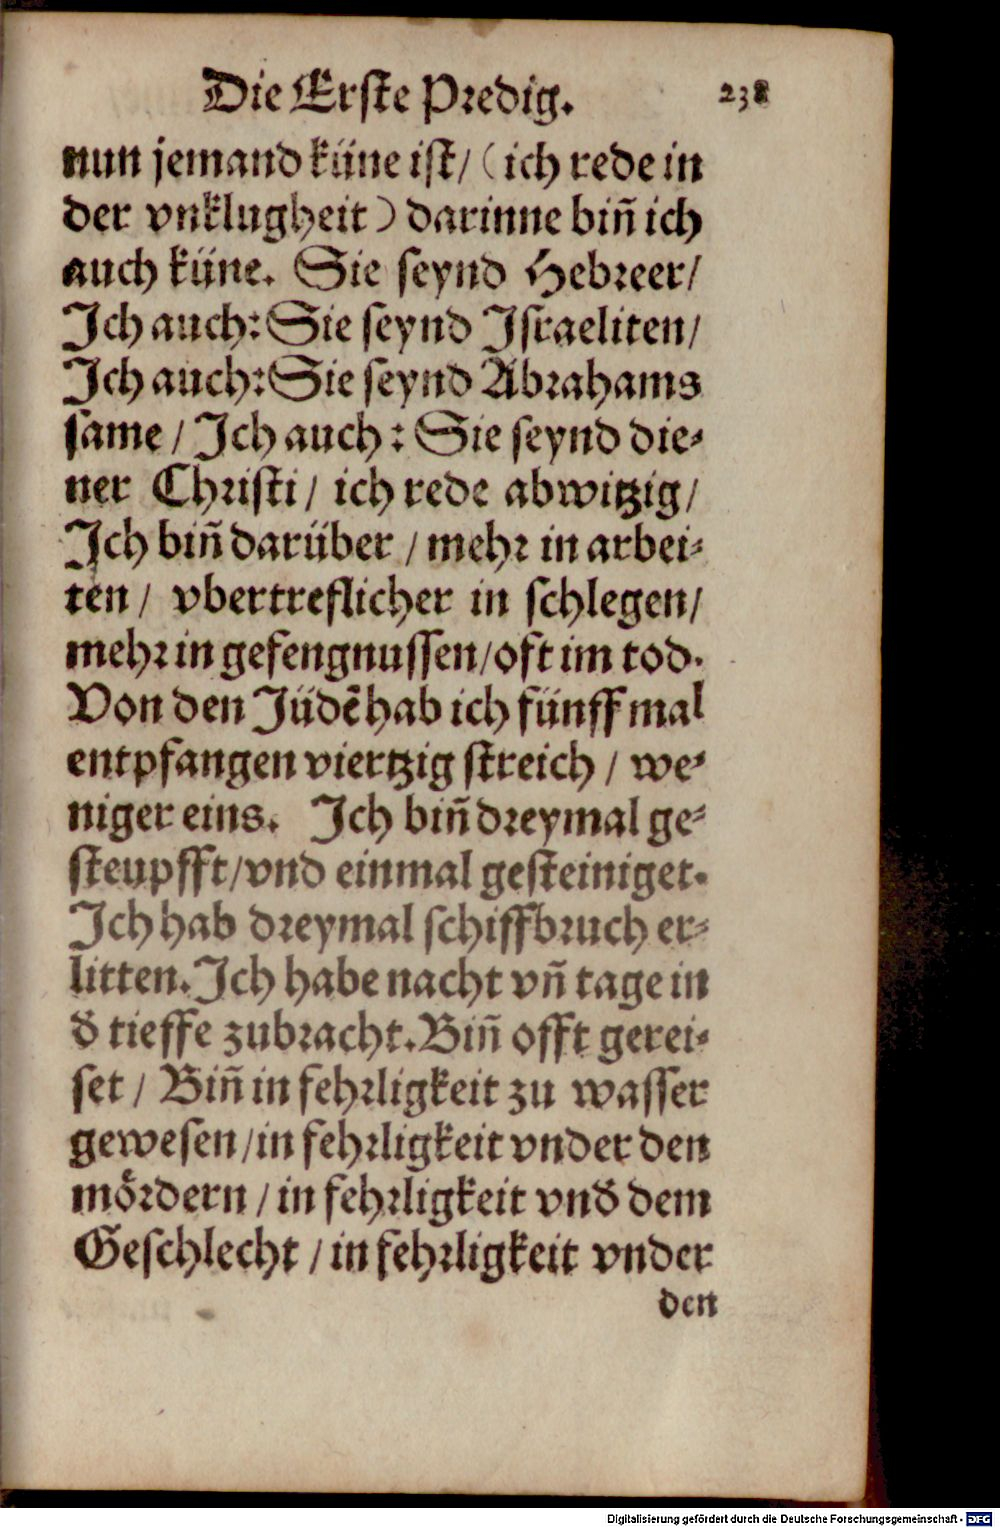 Die Erste Predig. 238
nun jemand küne ist/ (ich rede in
der vnklugheit) darinne biñ ich
auch küne. Sie seynd Hebreer/
Ich auch: Sie seynd Israeliten/
Ich auch: Sie seynd Abrahams
same / Ich auch: Sie seynd die-
ner Christi / ich rede abwitzig/
Ich biñ darüber / mehr in arbei-
ten / vbertreflicher in schlegen/
mehr in gefengnussen/oft im tod.
Von den Jüdẽ hab ich fünff mal
entpfangen viertzig streich / we-
niger eins. Ich biñ dreymal ge-
steupfft/vnd einmal gesteiniget.
Ich hab dreymal schiffbruch er-
litten. Ich habe nacht vñ tage in
d̕ tieffe zubracht. Biñ offt gerei-
set / Biñ in fehrligkeit zu wasser
gewesen/in fehrligkeit vnder den
mördern / in fehrligkeit vnd̕ dem
Geschlecht / in fehrligkeit vnder
den
Digitalisierung gefördert durch die Deutsche Forschungsgemeinschaft - DFG